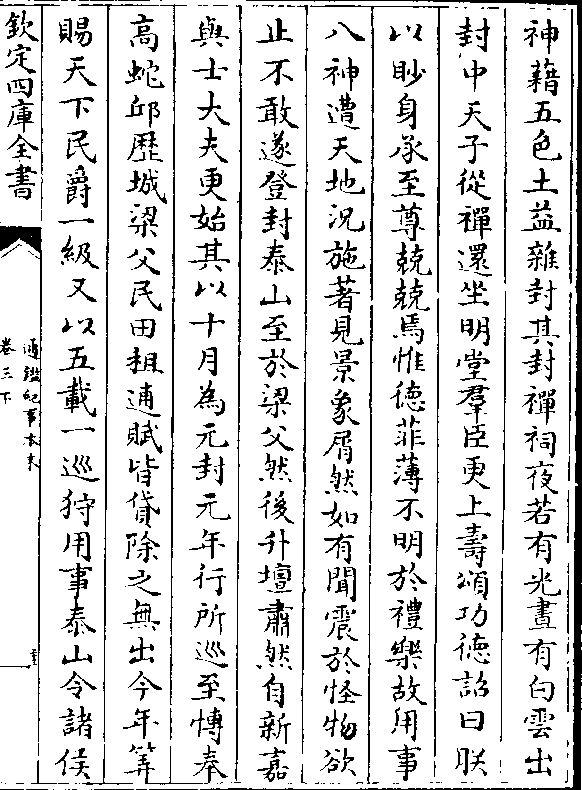 神藉五色土益雜封其封禪祠夜若有光晝有白雲出
封中天子從禪還坐明堂羣臣更上壽頌功德詔曰朕
以眇身承至尊兢兢焉惟德菲薄不明於禮樂故用事
八神遭天地況施著見景象屑然如有聞震於怪物欲
止不敢遂登封泰山至於梁父然後升壇肅然自新嘉
與士大夫更始其以十月為元封元年行所巡至博奉
高蛇邱歷城梁父民田租逋賦皆貸除之無出今年筭
賜天下民爵一級又以五載一巡狩用事泰山令諸侯
欽定四庫全書
通鑑紀事本末
卷三下